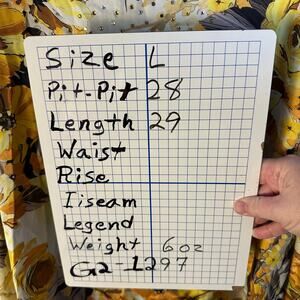 Size L
Pit-Pit 28
Length 29
Waist
Rise
Iiseam
Legend
Weight 6oz
G2-1297